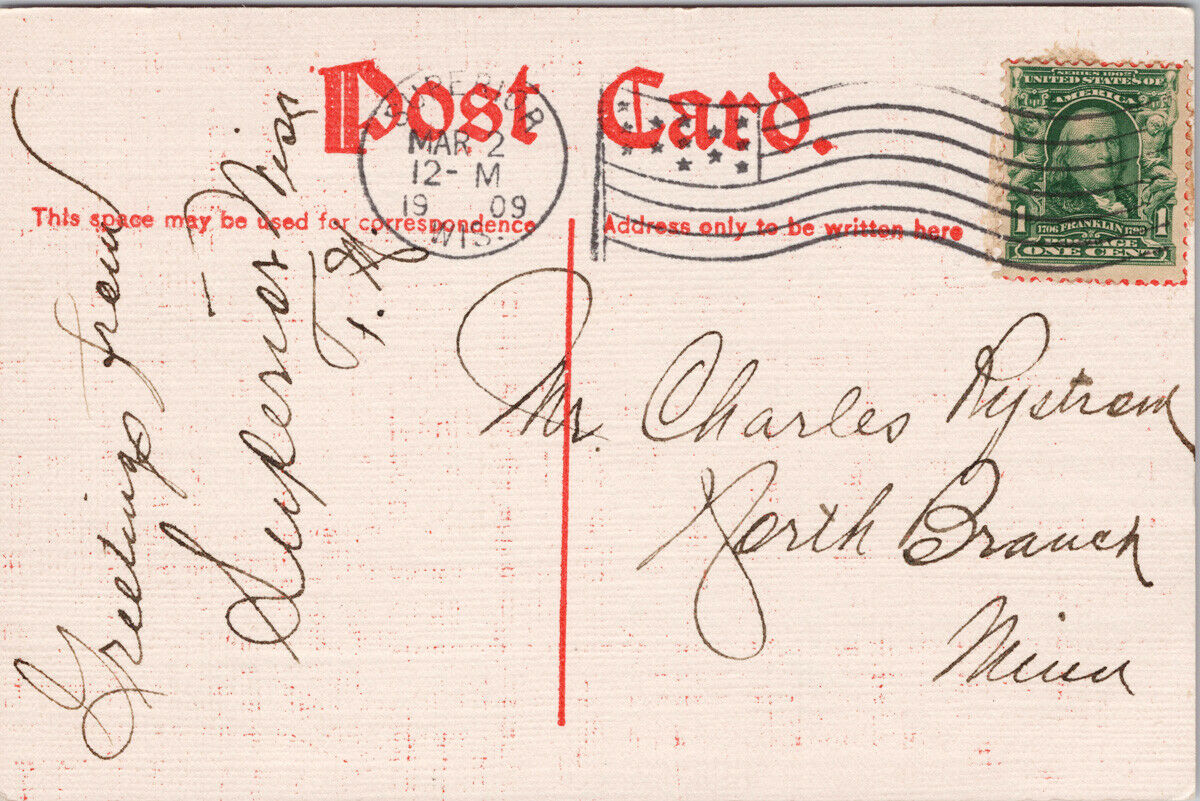 Post Card.
SUPERIOR
MAR 2
12- M
19 09
WIS.
SERIES 1902
UNITED STATES OF
AMERICA
1 1706 FRANKLIN 1790 1
POSTAGE
ONE CENT
This space may be used for correspondence
Address only to be written here
Greetings from
Superior Wis
Mr. Charles Rystrom
North Branch
Minn